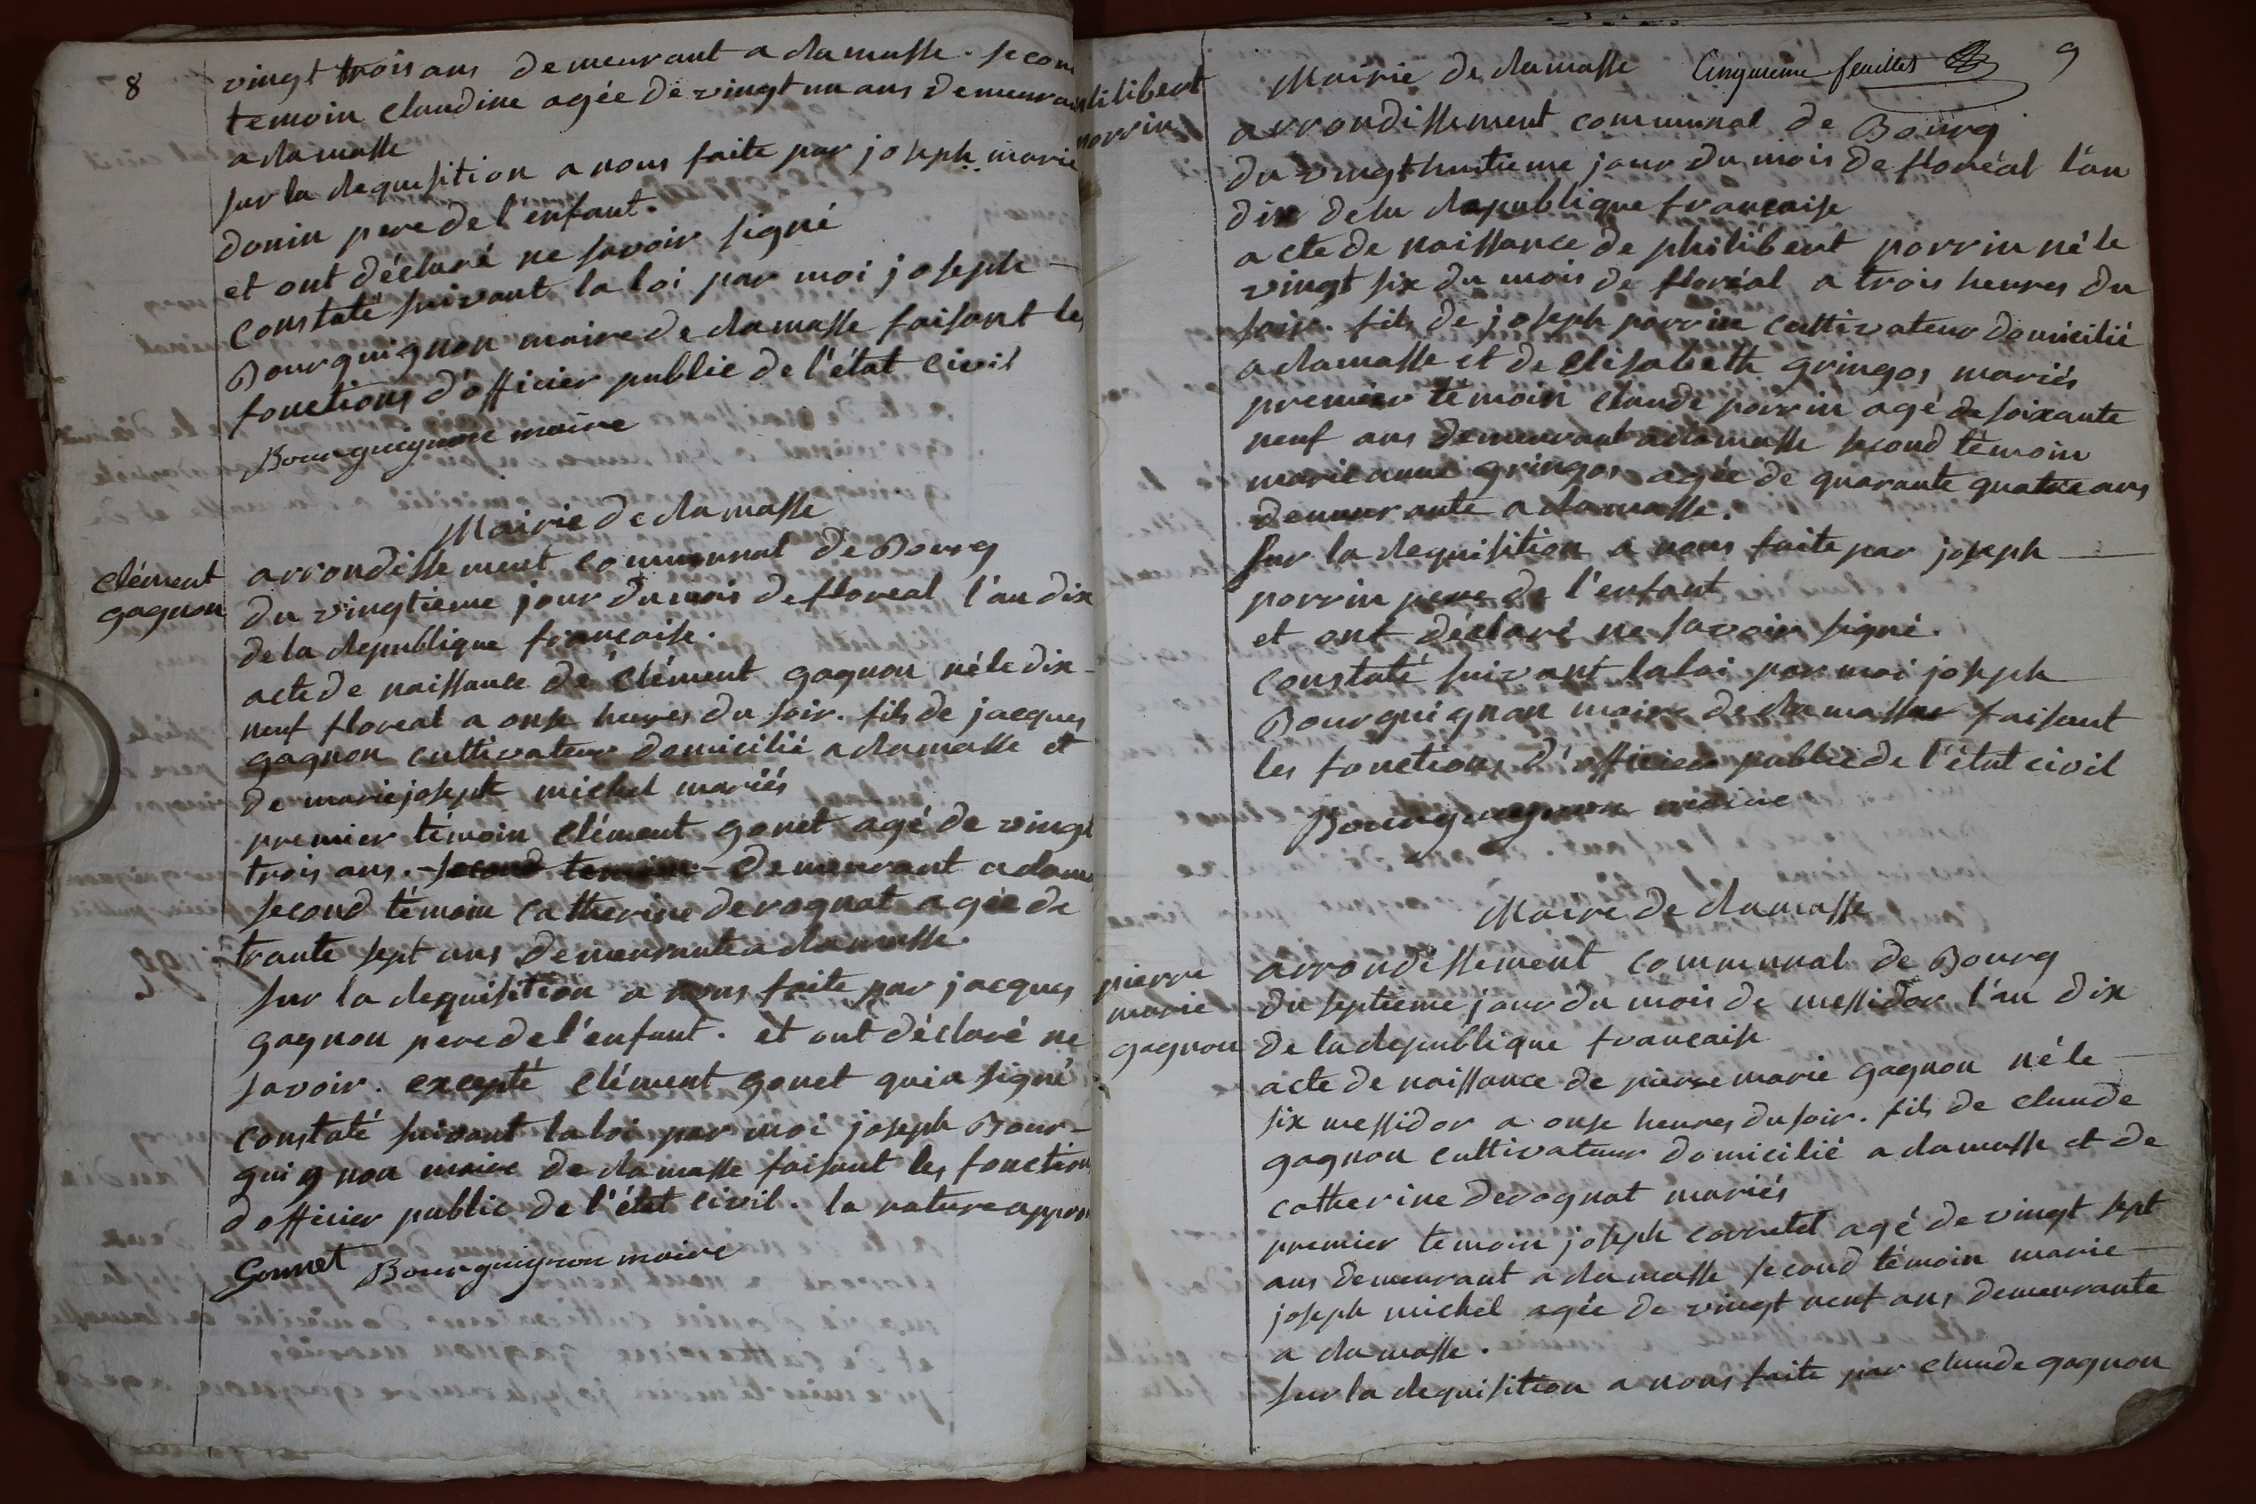 8
vingt trois ans demeurant a Ramasse. Secon
temoin claudine agée de vingt un ans demeura
a Ramasse
sur la Requisition a nous faite par joseph marie
donin pere de l'enfant.
et ont déclaré ne savoir signé
constaté suivant la loi par moi joseph
Bourguignon maire de Ramasse faisant les
fonctions d'officier public de l'état civil
Bourguignon maire
Mairie de Ramasse
clément
gagnon
arrondissement communal de Bourg
du vingtieme jour du mois de floreal l'an dix
de la Republique française.
acte de naissance de clément gagnon né le dix-
neuf floreal a onse heures du soir. fils de jacques
gagnon cultivateur domicilié a Ramasse et
de marie joseph michel mariés
premier témoin clément gonet agé de vingt
trois ans. second temoin demeurant a Rama
second témoin catherine derognat agée de
trante sept ans demeurante a Ramasse.
sur la Requisition a nous faite par jacques
gagnon pere de l'enfant. et ont déclaré ne
savoir. excepté clément gonet qui a signé
constaté suivant la loi par moi joseph Bour-
guignon maire de Ramasse faisant les fonction
d officier public de l'état civil. la rature appro
Gonnet Bourguignon maire
9
Cinquieme feuillet
philibert
porrin
Mairie de Ramasse
arrondissement communal de Bourg
du vingt huitieme jour du mois de floréal l'an
dix de la Republique française
acte de naissance de philibert porrin né le
vingt six du mois de floréal a trois heures du
soir. fils de joseph porrin cultivateur domicilié
a Ramasse et de elisabeth gringos mariés
premier témoin claude porrin agé de soixante
neuf ans demeurant a Ramasse second témoin
marie anne gringos agée de quarante quatre ans
demeurante a Ramasse.
sur la Requisition a nous faite par joseph
porrin pere de l'enfant
et ont déclaré ne savoir signé.
constaté suivant la loi par moi joseph
Bourguignon maire de Ramasse faisant
les fonctions d'officier public de l'état civil
Bourguignon maire
Maire de Ramasse
pierre
marie
gagnon
arrondissement communal de Bourg
du septieme jour du mois de messidor l'an dix
de la Republique francaise
acte de naissance de pierre marie gagnon né le
six messidor a onse heures du soir. fils de claude
gagnon cultivateur domicilié a Ramasse et de
catherine derognat mariés
premier temoin joseph corretet agé de vingt sept
ans demeurant a Ramasse second témoin marie
joseph michel agée de vingt neuf ans demeurante
a Ramasse.
sur la Requisition a nous faite par claude gagnon